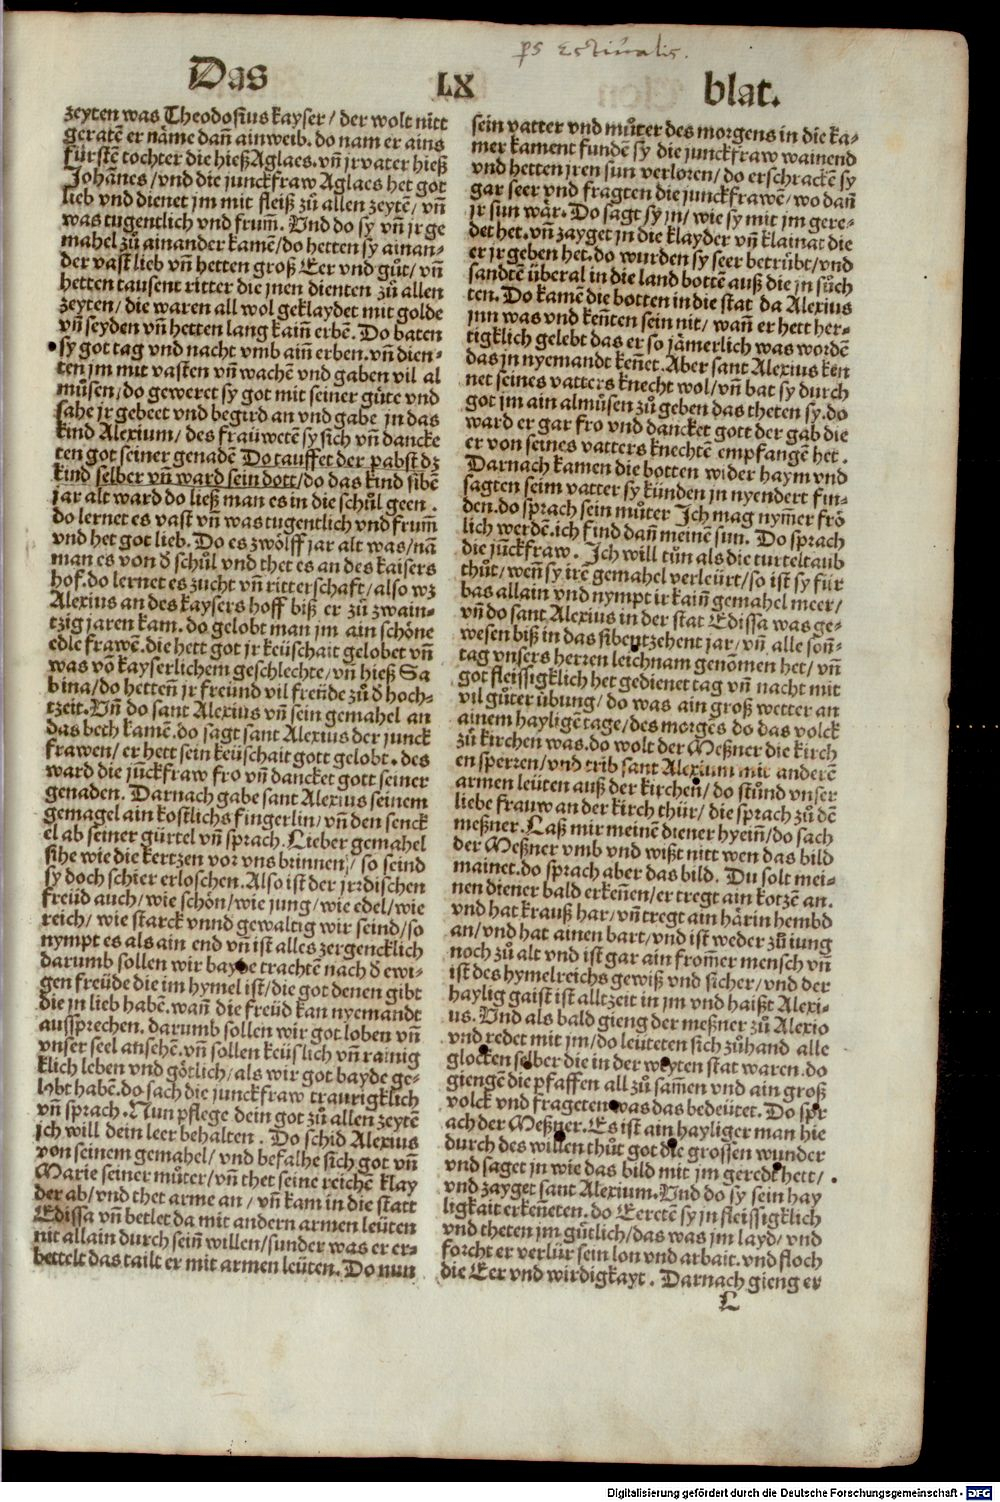 ps estiualis.
Das LX blat.
zeyten was Theodosius kayser / der wolt nitt
geratē er näme dañ ain weib. do nam er ains
fürstē tochter die hieß Aglaes. vñ jr vater hieß
Johānes / vnd die junckfraw Aglaes het got
lieb vnd dienet jm mit fleiß zů allen zeytē / vñ
was tugentlich vnd frum̄. Vnd do sy vñ jr ge
mahel zů ainander kamē / do hetten sy ainan-
der vast lieb vñ hetten groß Eer vnd gůt / vñ
hetten tausent ritter die jnen dienten zů allen
zeyten / die waren all wol geklaydet mit golde
vñ seyden vñ hetten lang kain̄ erbē. Do baten
sy got tag vnd nacht vmb ain̄ erben. vñ dien-
ten jm mit vasten vñ wachē vnd gaben vil al
můsen / do geweret sy got mit seiner güte vnd
sahe jr gebeet vnd begird an vnd gabe jn das
kind Alexium / des fraüwetē sy sich vñ dancke
ten got seiner genadē Do tauffet der pabst dz
kind selber vñ ward sein dott / do das kind sibē
jar alt ward do ließ man es in die schůl geen .
do lernet es vast vñ was tugentlich vnd frum̄
vnd het got lieb. Do es zwölff jar alt was / nā
man es von d̄ schůl vnd thet es an des kaisers
hof. do lernet es zucht vñ ritterschaft / also wz
Alexius an des kaysers hoff biß er zů zwain-
tzig jaren kam. do gelobt man jm ain schöne
edle frawē. die hett got jr keüschait gelobet vñ
was vō kayserlichem geschlechte / vñ hieß Sa
bina / do hetteñ jr freünd vil freüde zů d̄ hoch-
tzeit. Vñ do sant Alexius vñ sein gemahel an
das beth kamē. do sagt sant Alexius der junck
frawen / er hett sein keüschait gott gelobt. des
ward die jūckfraw fro vñ dancket gott seiner
genaden. Darnach gabe sant Alexius seinem
gemagel ain kostlichs fingerlin / vñ den senck
el ab seiner gürtel vñ sprach. Lieber gemahel
sihe wie die kertzen vor vns brinnen / so seind
sy doch schier erloschen. Also ist der jrrdischen
freüd auch / wie schön / wie jung / wie edel / wie
reich / wie starck vnnd gewaltig wir seind / so
nympt es als ain end vñ ist alles zergencklich
darumb sollen wir bayde trachtē nach d̄ ewi-
gen freüde die im hymel ist / die got denen gibt
die jn lieb habē. wañ die freüd kan nyemandt
aussprechen. darumb sollen wir got loben vñ
vnser seel ansehē. vñ sollen keüslich vñ rainig
klich leben vnd götlich / als wir got bayde ge-
lobt habē. do sach die junckfraw traurigklich
vñ sprach. Nun pflege dein got zů allen zeytē
ich will dein leer behalten . Do schid Alexius
von seinem gemahel / vnd befalhe sich got vñ
Marie seiner můter / vñ thet seine reichē klay
der ab / vnd thet arme an / vñ kam in die statt
Edissa vñ betlet da mit andern armen leüten
nit allain durch sein̄ willen / sunder was er er-
bettelt das tailt er mit armen leüten. Do nun
sein vatter vnd můter des morgens in die ka-
mer kament fundē sy die junckfraw wainend
vnd hetten jren sun verloren / do erschrackē sy
gar seer vnd fragten die junckfrawē / wo dañ
jr sun wär. Do sagt sy jn / wie sy mit jm gere-
det het. vñ zayget jn die klayder vñ klainat die
er jr geben het. do wurden sy seer betrübt / vnd
sandtē überal in die land bottē auß die jn sůch
ten. Do kamē die botten in die stat da Alexius
inn was vnd keñten sein nit / wañ er hett her-
tigklich gelebt das er so jämerlich was wordē
das jn nyemandt keñet. Aber sant Alexius ken
net seines vatters knecht wol / vñ bat sy durch
got jm ain almůsen zů geben das theten sy. do
ward er gar fro vnd dancket gott der gab die
er von seines vatters knechtē empfangē het .
Darnach kamen die botten wider haym vnd
sagten seim vatter sy künden jn nyendert fin-
den. do sprach sein můter Ich mag nym̄er frö
lich werdē. ich find dañ meinē sun. Do sprach
die jūckfraw . Ich will tůn als die turteltaub
thůt / weñ sy irē gemahel verleürt / so ist sy für
bas allain vnd nympt ir kain̄ gemahel meer /
vñ do sant Alexius in der stat Edissa was ge-
wesen biß in das sibentzehent jar / vñ alle son̄-
tag vnsers herren leichnam genōmen het / vñ
got fleissigklich het gedienet tag vñ nacht mit
vil gůter übung / do was ain groß wetter an
ainem hayligē tage / des morgēs do das volck
zů kirchen was. do wolt der Meßner die kirch
en sperren / vnd trib sant Alexium mit anderē
armen leüten auß der kircheñ / do stůnd vnser
liebe frauw an der kirch thür / die sprach zů dē
meßner. Laß mir meinē diener hyein̄ / do sach
der Meßner vmb vnd wißt nitt wen das bild
mainet. do sprach aber das bild. Du solt mei-
nen diener bald erkeñen / er tregt ain kotzē an.
vnd hat krauß har / vñ tregt ain härin hembd
an / vnd hat ainen bart / vnd ist weder zů iung
noch zů alt vnd ist gar ain from̄er mensch vñ
ist des hymelreichs gewiß vnd sicher / vnd der
haylig gaist ist alltzeit in jm vnd haißt Alexi-
us. Vnd als bald gieng der meßner zů Alexio
vnd redet mit jm / do leüteten sich zůhand alle
glocken selber die in der weyten stat waren. do
giengē die pfaffen all zů sam̄en vnd ain groß
volck vnd frageten was das bedeütet. Do spr
ach der Meßner. Es ist ain hayliger man hie
durch des willen thůt got die grossen wunder
vnd saget jn wie das bild mit jm geredt hett / .
vnd zayget sant Alexium. Vnd do sy sein hay
ligkait erkeñeten. do Eeretē sy jn fleissigklich
vnd theten jm gůtlich / das was jm layd / vnd
forcht er verlür sein lon vnd arbait. vnd floch
die Eer vnd wirdigkayt . Darnach gieng er
L
Digitalisierung gefördert durch die Deutsche Forschungsgemeinschaft - DFG